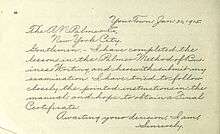 Your Town, Jan. 26, 1915.
The A. N. Palmer Co.,
New York City.
Gentlemen: I have completed the
lessons in the Palmer Method of Bus-
iness Writing and herewith submit my
examination. I have tried to follow
closely the printed instructions in the
manual, and hope to obtain a Final
Certificate.
Awaiting your decision, I am
Sincerely,